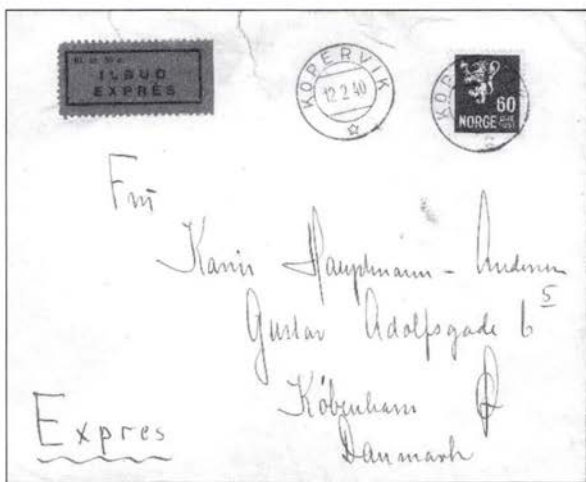 ILBUD
EXPRÈS
KOPERVIK
12.2.40
KOP
60
NORGE
Fru
Karin Hauptmann-Andersen
Gustav Adolfsgade 6 5
København Ø
Expres
Danmark